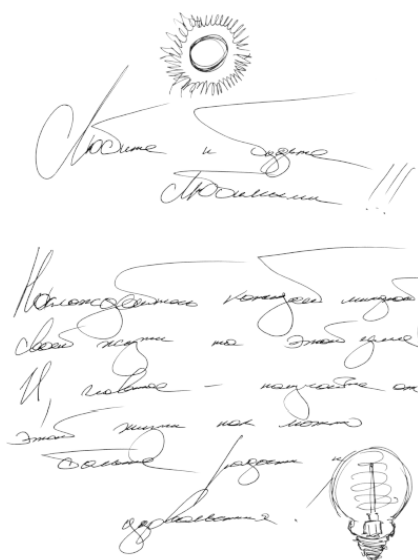 Любите и будьте
Любимыми!!!
Наслаждайтесь каждой минутой
своей жизни на этой
И, главное – получайте от
этой жизни как можно
больше радости и
удовольствия.